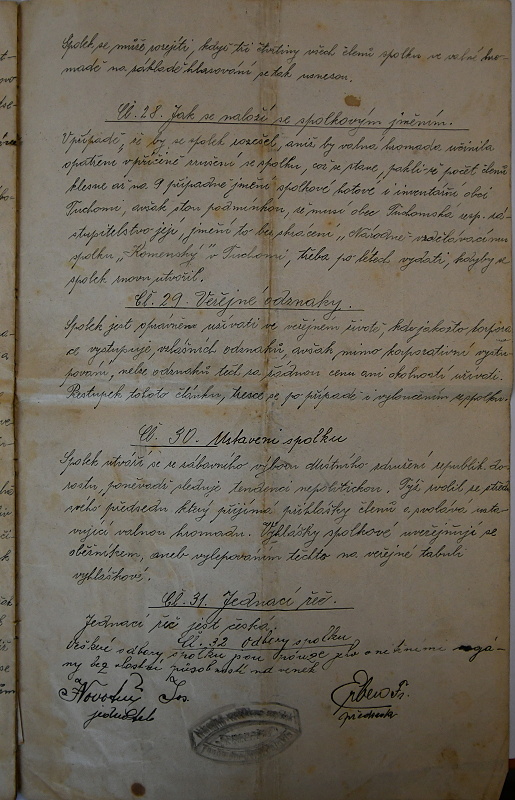 Spolek se může rozejíti, když tři čtvrtiny všech členů spolku ve valné hro-
madě na základě hlasování se tak usnesou.
Čl. 28. Jak se naloží se spolkovým jměním.
V případě, že by se spolek rozešel, aniž by valná hromada učinila
opatření v příčině zrušení se spolku, což se stane, pakli že počet členů
klesne až na 9 případně jmění spolkové hotové i inventární obci
Tuchomi, avšak s tou podmínkou, že musí obec Tuchomská resp. zá-
stupitelstvo její, jmění to bez zkrácení „Národně-vzdělávacímu
spolku „Komenský" v Tuchomi, třeba po létech vydati, kdyby se
spolek znovu utvořil.
Čl. 29. Veřejné odznaky.
Spolek jest oprávněn užívati ve veřejném životě, kde jakožto korpora-
ce vystupuje, zvláštních odznaků, avšak mimo korporativní vystu-
pování, nelze odznaků těch za žádnou cenu ani okolností užívati.
Přestupek tohoto článku, tresce se po případě i vyloučením ze spolku.
Čl. 30. Ustavení spolku
Spolek utváří se ze zábavního výboru místního sdružení republik. do-
rostu, poněvadž sleduje tendenci nepolitickou. Týž zvolil ze středu
svého předsedu který přijímá přihlášky členů a svolává usta-
vující valnou hromadu. Vyhlášky spolkové uveřejňují se
oběžníkem, anebo vylepováním těchto na veřejné tabuli
vyhláškové.
Čl. 31. Jednací řeč.
Jednací řeč jest česká.
Čl. 32 Odbory spolku
Veškeré odbory spolku jsou pouze jeho vnitřními orgá-
ny bez vlastní působnosti na venek
Novotný Jos.
jednatel
předseda